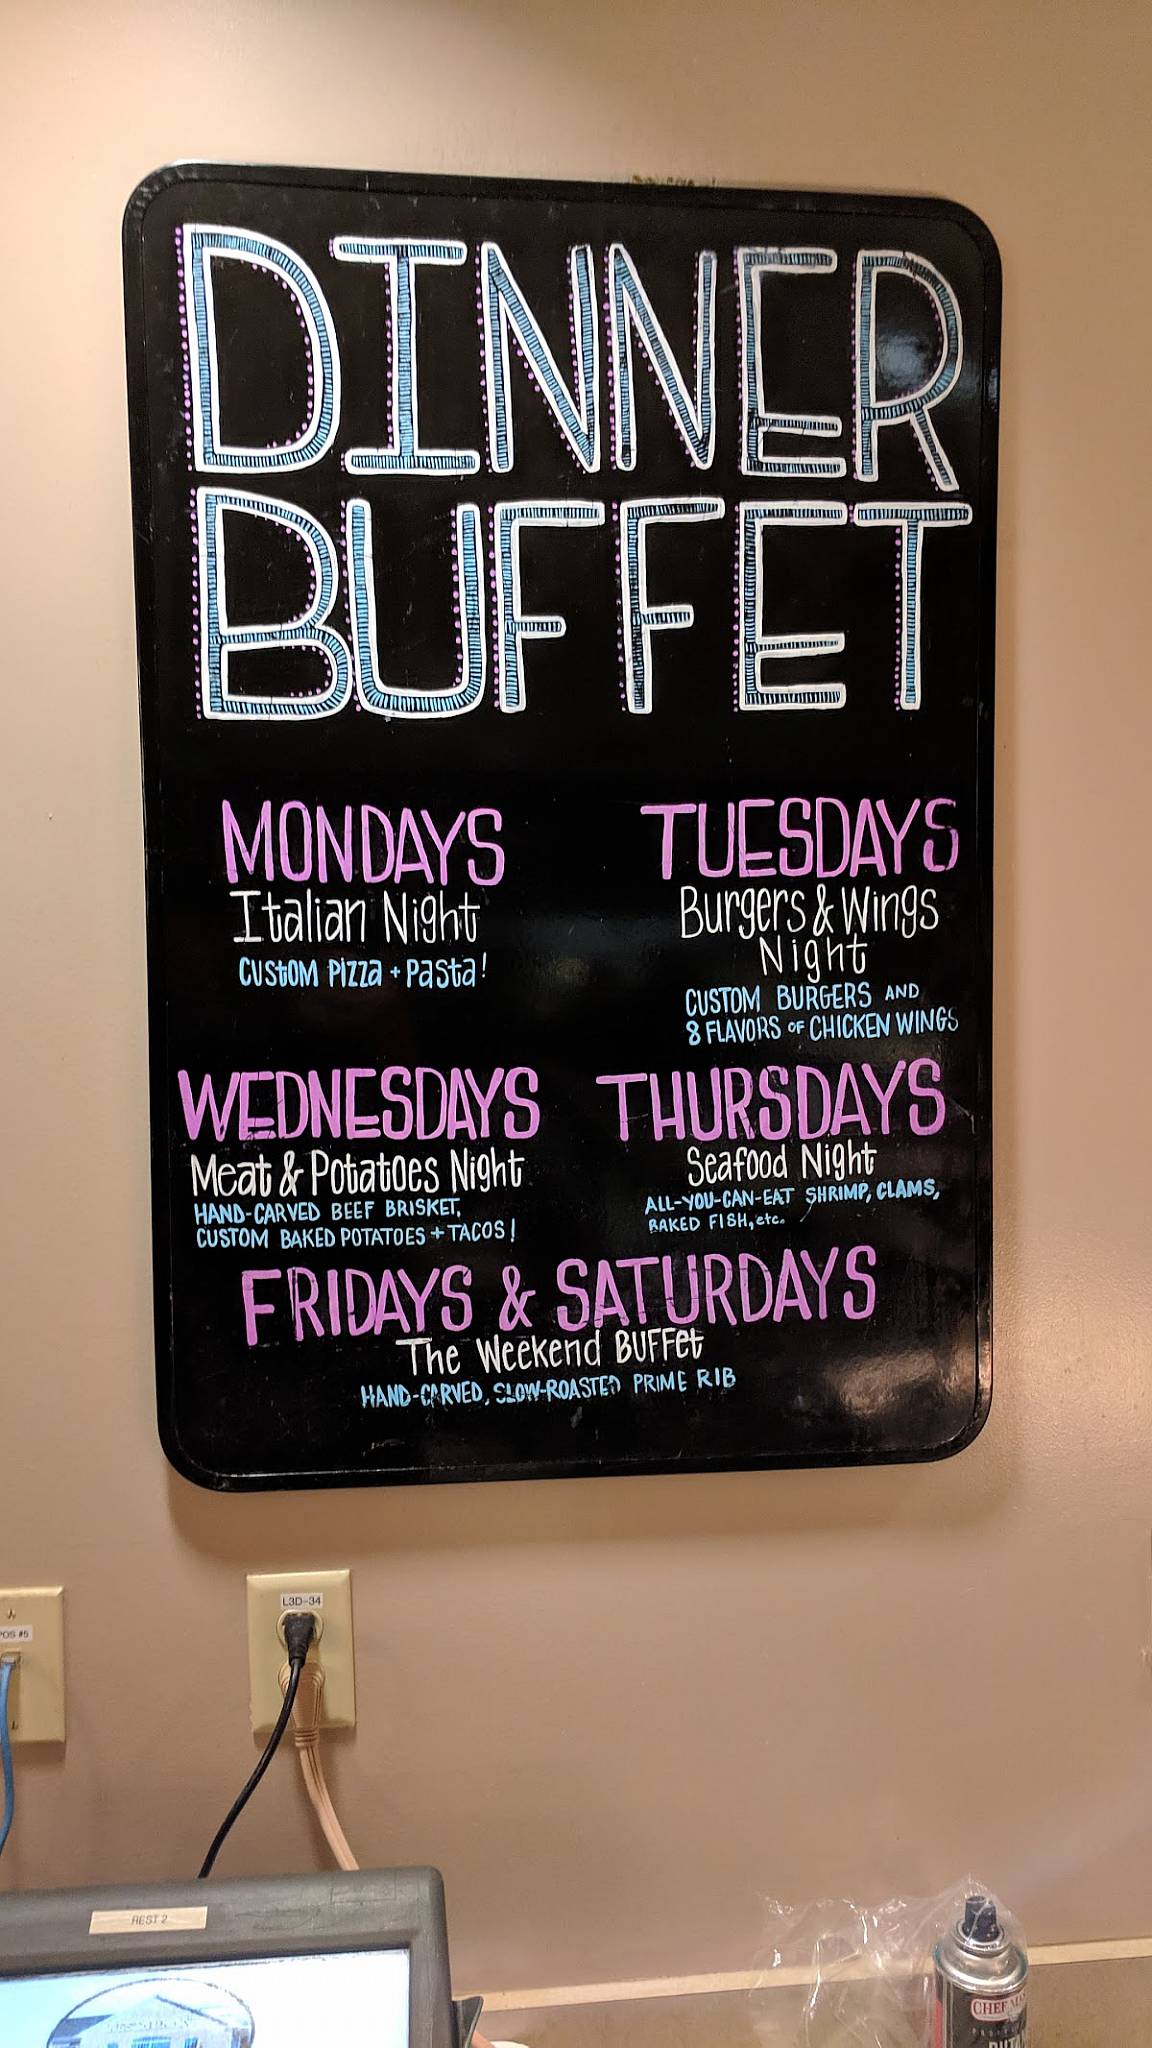 DINNER
BUFFET
MONDAYS
Italian Night
CUSTOM PIZZA + Pasta!
TUESDAYS
Burgers & Wings
Night
CUSTOM BURGERS AND
8 FLAVORS OF CHICKEN WINGS
WEDNESDAYS
Meat & Potatoes Night
HAND-CARVED BEEF BRISKET,
CUSTOM BAKED POTATOES + TACOS!
THURSDAYS
Seafood Night
ALL-YOU-CAN-EAT SHRIMP, CLAMS,
BAKED FISH, etc.
FRIDAYS & SATURDAYS
The Weekend BUFFet
HAND-CARVED, SLOW-ROASTED PRIME RIB
L3D-34
POS #5
REST 2
CHEF